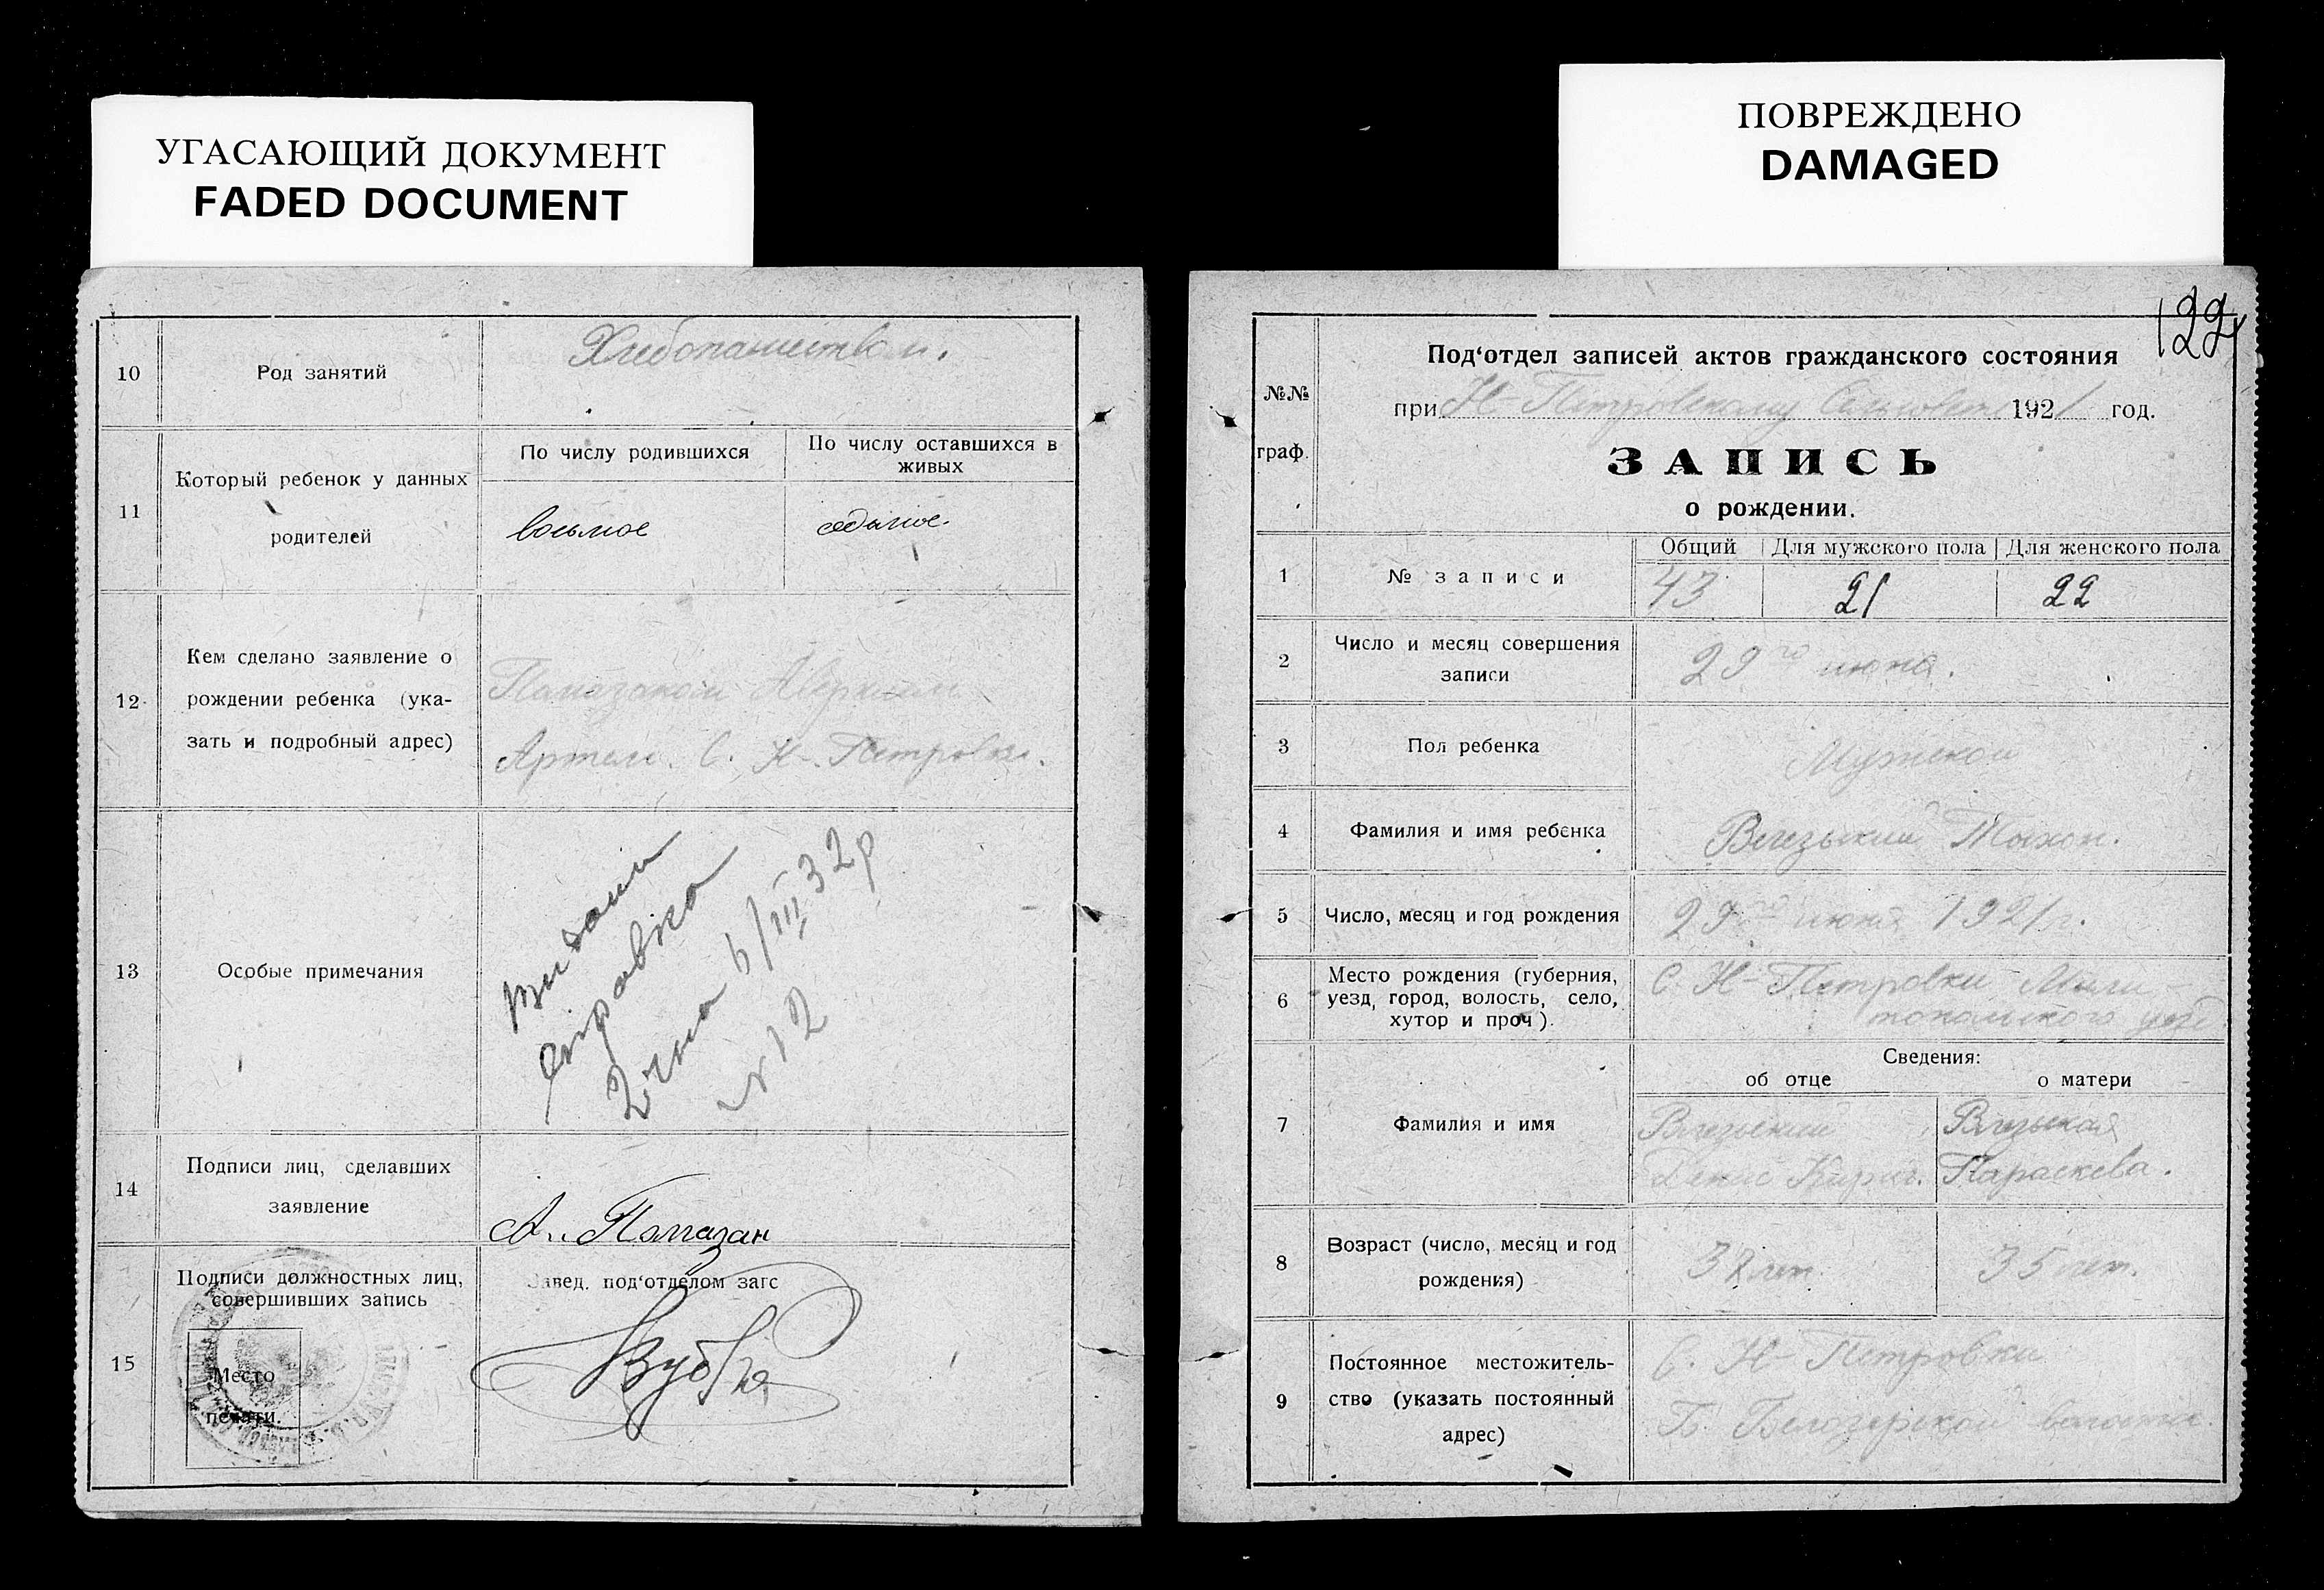 УГАСАЮЩИЙ ДОКУМЕНТ
FADED DOCUMENT
10
Род занятий
Хлебопашеством.
11
Который ребенок у данных
родителей
По числу родившихся
По числу оставшихся в
живых
восьмое
седьмое.
12
Кем сделано заявление о
рождении ребенка (ука-
зать и подробный адрес)
Памазаном Аверкием
Артем. С. Н-Петровки.
13
Особые примечания
справка
6/III 32р
N 12
14
Подписи лиц, сделавших
заявление
А. Памазан
15
Подписи должностных лиц,
совершивших запись
Место
печати.
Завед. под'отделом загс
ПОВРЕЖДЕНО
DAMAGED
122
№№
граф.
Под'отдел записей актов гражданского состояния
при Н-Петровскому 1921 год.
ЗАПИСЬ
о рождении.
1
№ записи
Общий
Для мужского пола
Для женского пола
43
21
22
2
Число и месяц совершения
записи
29го июня.
3
Пол ребенка
Мужской
4
Фамилия и имя ребенка
Тихон.
5
Число, месяц и год рождения
29го июня 1921 г.
6
Место рождения (губерния,
уезд, город, волость, село,
хутор и проч).
С. Н-Петровки Мели-
топольского уезд
7
Фамилия и имя
Сведения:
об отце
о матери
Денис
Параскева.
8
Возраст (число, месяц и год
рождения)
38 лет.
35 лет.
9
Постоянное местожитель-
ство (указать постоянный
адрес)
С. Н-Петровки
Б. Белозерской волости.